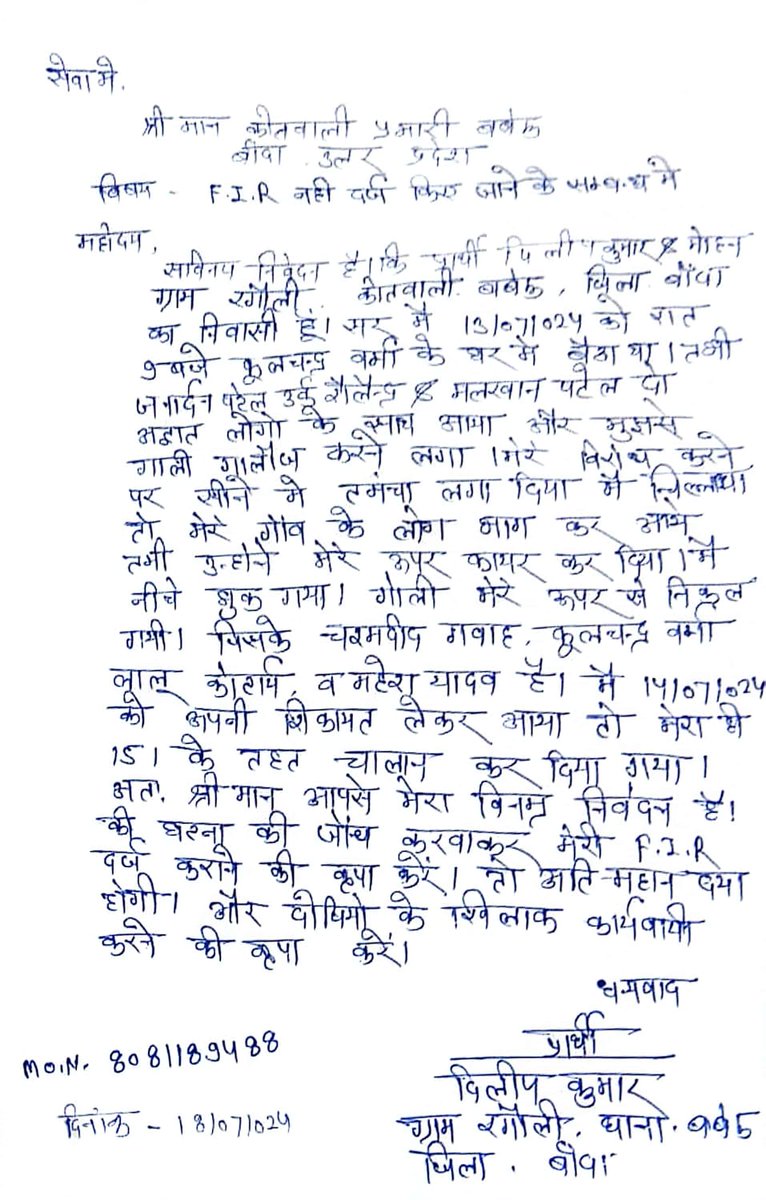 सेवा मे.
श्री मान कोतवाली प्रभारी बबेरू
बाँदा उत्तर प्रदेश
विषय - F.I.R नही दर्ज किए जाने के सम्बन्ध में
महोदय,
सविनय निवेदन है। कि प्रार्थी दिलीप कुमार S/ मोहन
ग्राम रगौली, कोतवाली बबेरू, जिला बाँदा
का निवासी हूं। सर मै 13/07/024 को रात
9 बजे फूलचन्द्र वर्मा के घर मे बैठा था। तभी
जनार्दन पटेल उर्फ शैलेन्द्र S/ मलखान पटेल दो
अज्ञात लोगो के साथ आया और मुझसे
गाली गालौज करने लगा। मेरे विरोध करने
पर सीने मे तमंचा लगा दिया मै चिल्लाया
तो मेरे गाँव के लोग भाग कर आये
तभी उन्होने मेरे ऊपर फायर कर दिया। मै
नीचे झुक गया। गोली मेरे ऊपर से निकल
गयी। जिसके चश्मदीद गवाह, फूलचन्द्र वर्मा
लालू व महेश यादव है। मै 14/07/024
को अपनी शिकायत लेकर आया तो मेरा ही
151 के तहत चालान कर दिया गया।
अतः श्री मान आपसे मेरा विनम्र निवेदन है।
की घटना की जाँच करवाकर मेरी F.I.R
दर्ज कराने की कृपा करें। तो अति महान दया
होगी। और दोषियो के खिलाफ कार्यवायी
करने की कृपा करें।
धन्यवाद
प्रार्थी
दिलीप कुमार
ग्राम रगौली, थाना. बबेरू
जिला. बाँदा
MO.N. 8081189488
दिनांक - 18/07/024